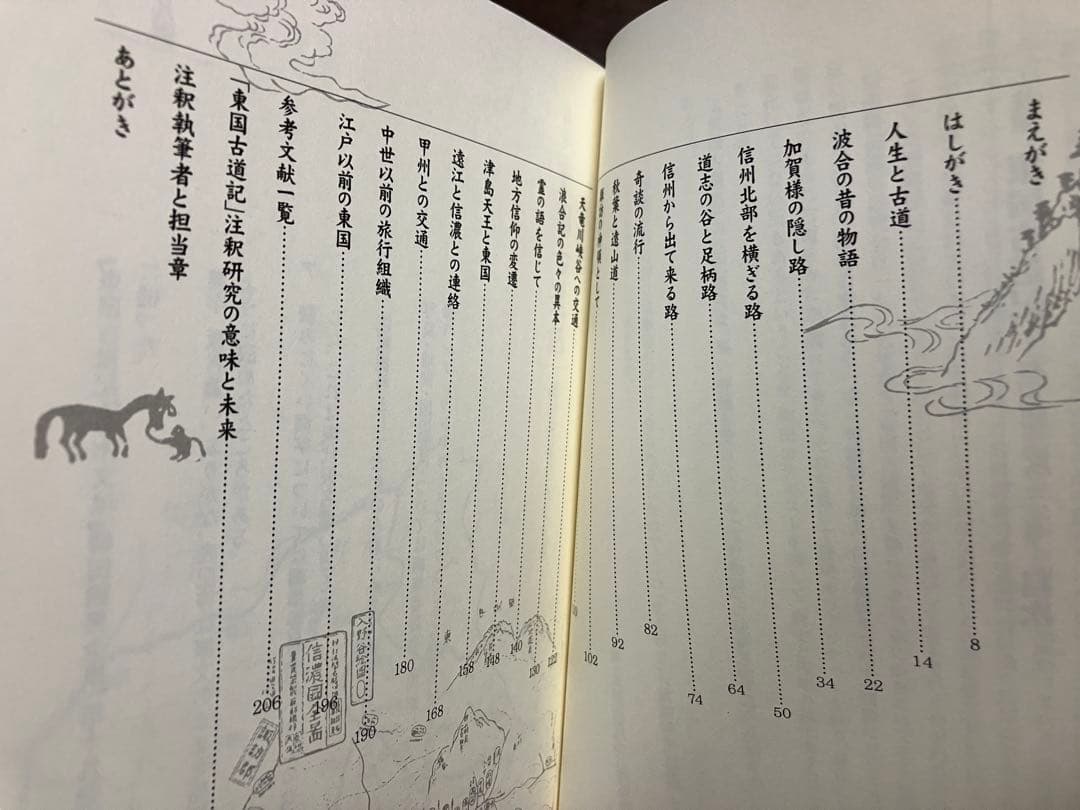 まえがき
はしがき 8
人生と古道 14
波合の昔の物語 22
加賀様の隠し路 34
信州北部を横ぎる路 50
道志の谷と足柄路 64
信州から出て来る路 74
奇談の流行 82
秋葉と遠山道 92
102
天竜川峡谷への交通
浪合記の色々の異本 122
霊の語を信じて 130
地方信仰の変遷 140
津島天王と東国 148
遠江と信濃との連絡 158
甲州との交通 168
中世以前の旅行組織 180
江戸以前の東国 190
参考文献一覧 196
「東国古道記」注釈研究の意味と未来 206
注釈執筆者と担当章
あとがき
東
信濃国全図